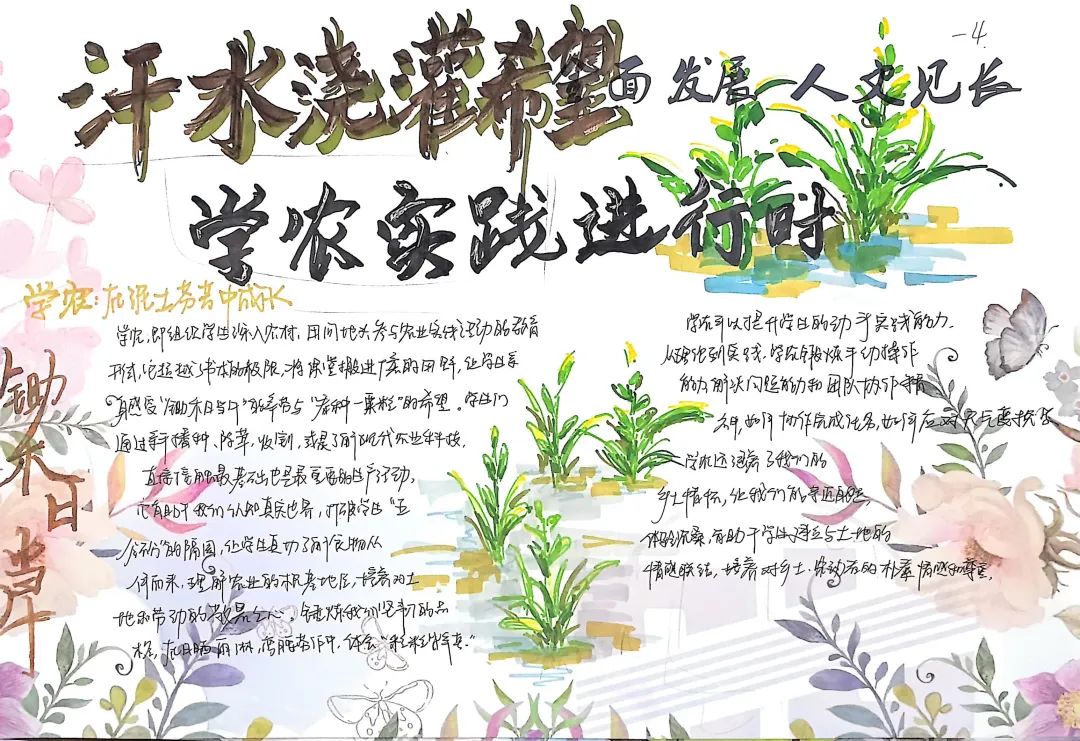 一4.
汗水浇灌希望
面发展 人文见长
学农实践进行时
学农:在泥土劳苦中成长
锄禾日当午
学农,即组织学生深入农村、田间地头参与农业实践活动的教育
形式,它超越了书本的极限,将课堂搬进广袤的田野,让学生亲
身感受"锄禾日当午"的辛劳与"春种一粟粒"的希望。学生们
通过亲手播种、除草、收割,或是了解现代农业科技,
直接接触最基础也是最重要的生产活动,
它有助于我们认知真实世界,打破学生"五
谷不分"的隔阂,让学生真切了解食物从
何而来,理解农业的根基地位,培养对土
地和劳动的敬畏之心。锤炼我们坚韧的品
格,在日晒雨淋,弯腰劳作中,体会"粒粒皆辛苦."
学农可以提升学生的动手实践能力.
从理论到实践.学农锻炼手动操作
能力解决问题能力和团队协作精
神,如何协作完成任务,如何应对天气变换 等
学农还涵养了我们的
乡土情怀,让我们能亲近自然
有助于学生建立与土地的
情感联结,培养对乡土、劳动者的朴素情感和尊重.